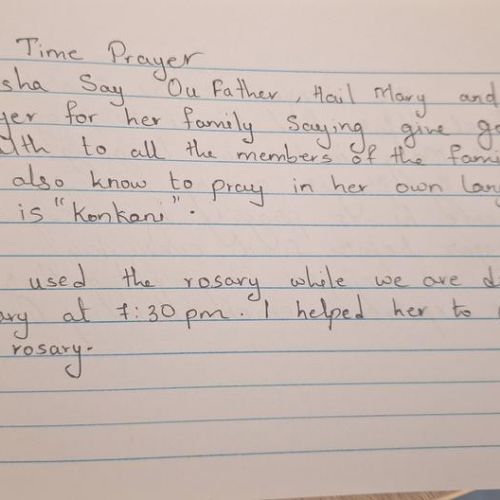 Time Prayer
sha Say Ou Father, Hail Mary and
yer for her family Saying give go
lth to all the members of the fami
also know to pray in her own lang
is "Konkani".
used the rosary while we are d
ary at 7:30 pm. I helped her to
rosary.